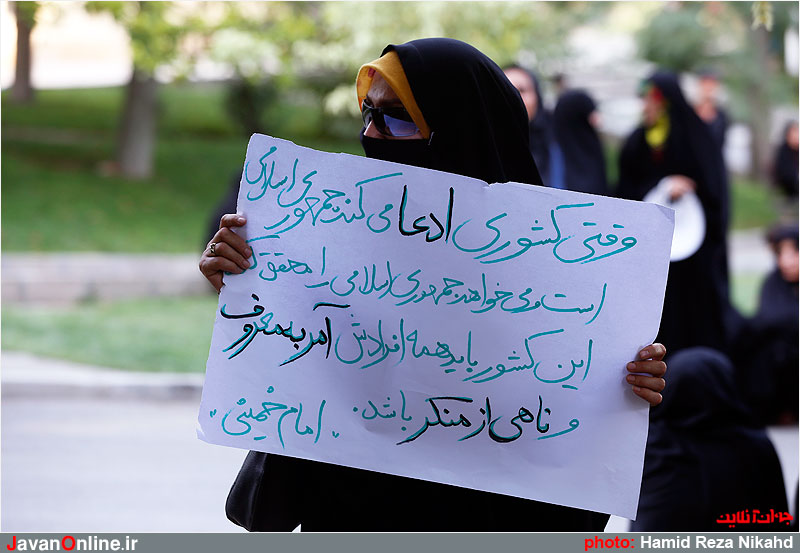 وقتی کشوری ادعا می‌کند جمهوری اسلامی
است و می‌خواهد جمهوری اسلامی را محقق کند
این کشور باید همه افرادش آمر به معروف
و ناهی از منکر باشد. "امام خمینی"
جوان آنلاین
JavanOnline.ir
photo: Hamid Reza Nikahd